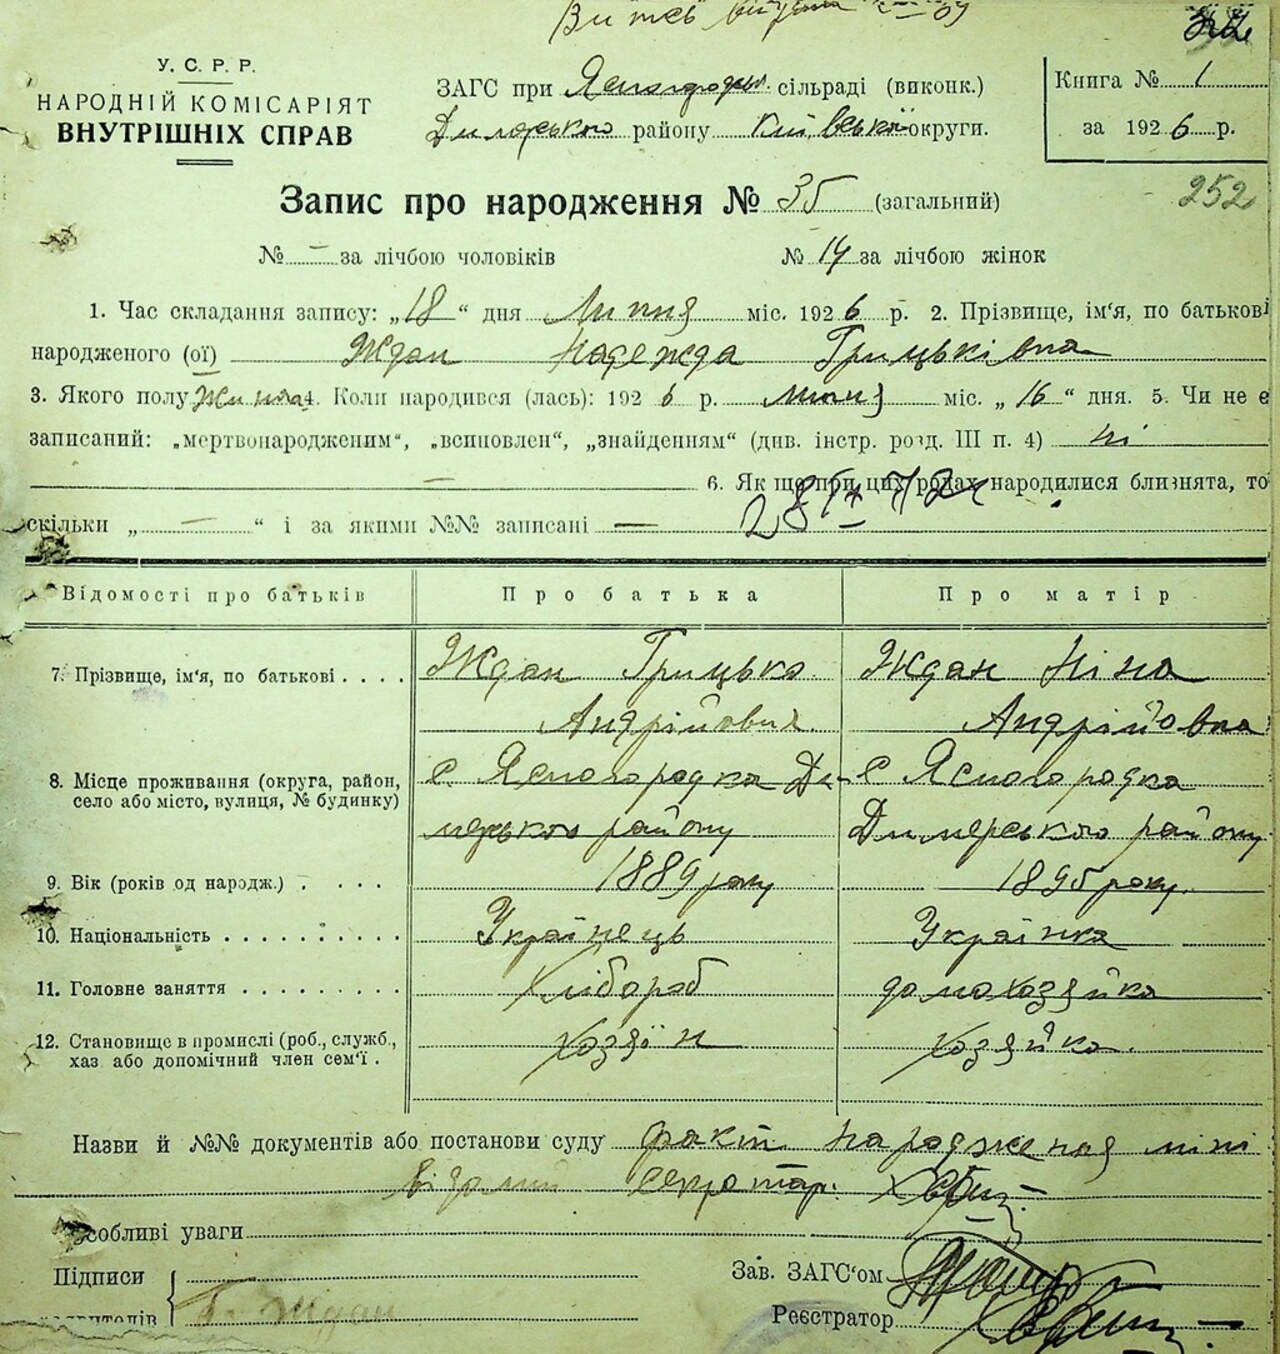 У. С. Р. Р.
НАРОДНІЙ КОМІСАРІЯТ
ВНУТРІШНІХ СПРАВ
ЗАГС при Ясногородськ. сільраді (виконк.)
Димерського району Київської округи.
Книга № 1
за 1926 р.
252
Запис про народження № 35 (загальний)
№ – за лічбою чоловіків № 14 за лічбою жінок
1. Час складання запису: „18“ дня Липня міс. 1926 р. 2. Прізвище, ім'я, по батькові
народженого (ої) Ждан Надежда Грицьківна
3. Якого полу Жіноча 4. Коли народився (лась): 1926 р. міс. „16“ дня. 5. Чи не є
записаний: „мертвонародженим“, „всиновлен“, „знайденням“ (див. інстр. розд. III п. 4) ні
— 6. Як що при цих родах народилися близнята, то
скільки „ — “ і за якими №№ записані —
Відомості про батьків Про батька Про матір
7. Прізвище, ім'я, по батькові . . . . Ждан Грицько Ждан Ніна
Андрійович Андрійовна
8. Місце проживання (округа, район, село або місто, вулиця, № будинку) с Ясногородка Ди- с Ясногородка
мерського району Димерського району
9. Вік (років од народж.) . . . . 1889 року 1895 року.
10. Національність . . . . . . . . . . Українець Українка
11. Головне заняття . . . . . . . . . Хлібороб домохозяйка
12. Становище в промислі (роб., служб., хаз. або допомічний член сем'ї . хозяїн хозяйка.
Назви й №№ документів або постанови суду факт народження мині
відомий секретар.
Особливі уваги
Підписи
Ждан
Зав. ЗАГС'ом
Реєстратор